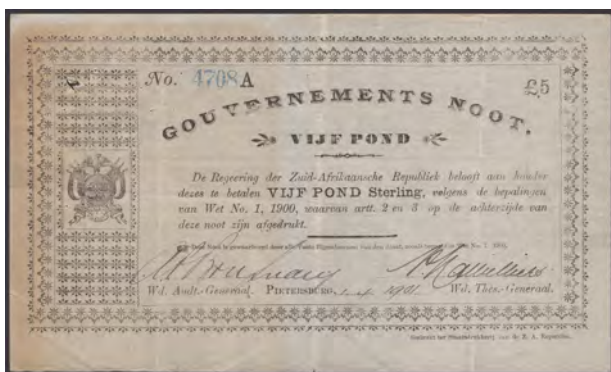 No. 4708 A
£5
GOUVERNEMENTS NOOT.
VIJF POND
De Regeering der Zuid-Afrikaansche Republiek belooft aan houder
dezes te betalen VIJF POND Sterling, volgens de bepalingen
van Wet No. 1, 1900, waarvan artt. 2 en 3 op de achterzijde van
deze noot zijn afgedrukt.
Wd. Audt.-Generaal. PIETERSBURG, 1-4 1901 Wd. Thes.-Generaal.